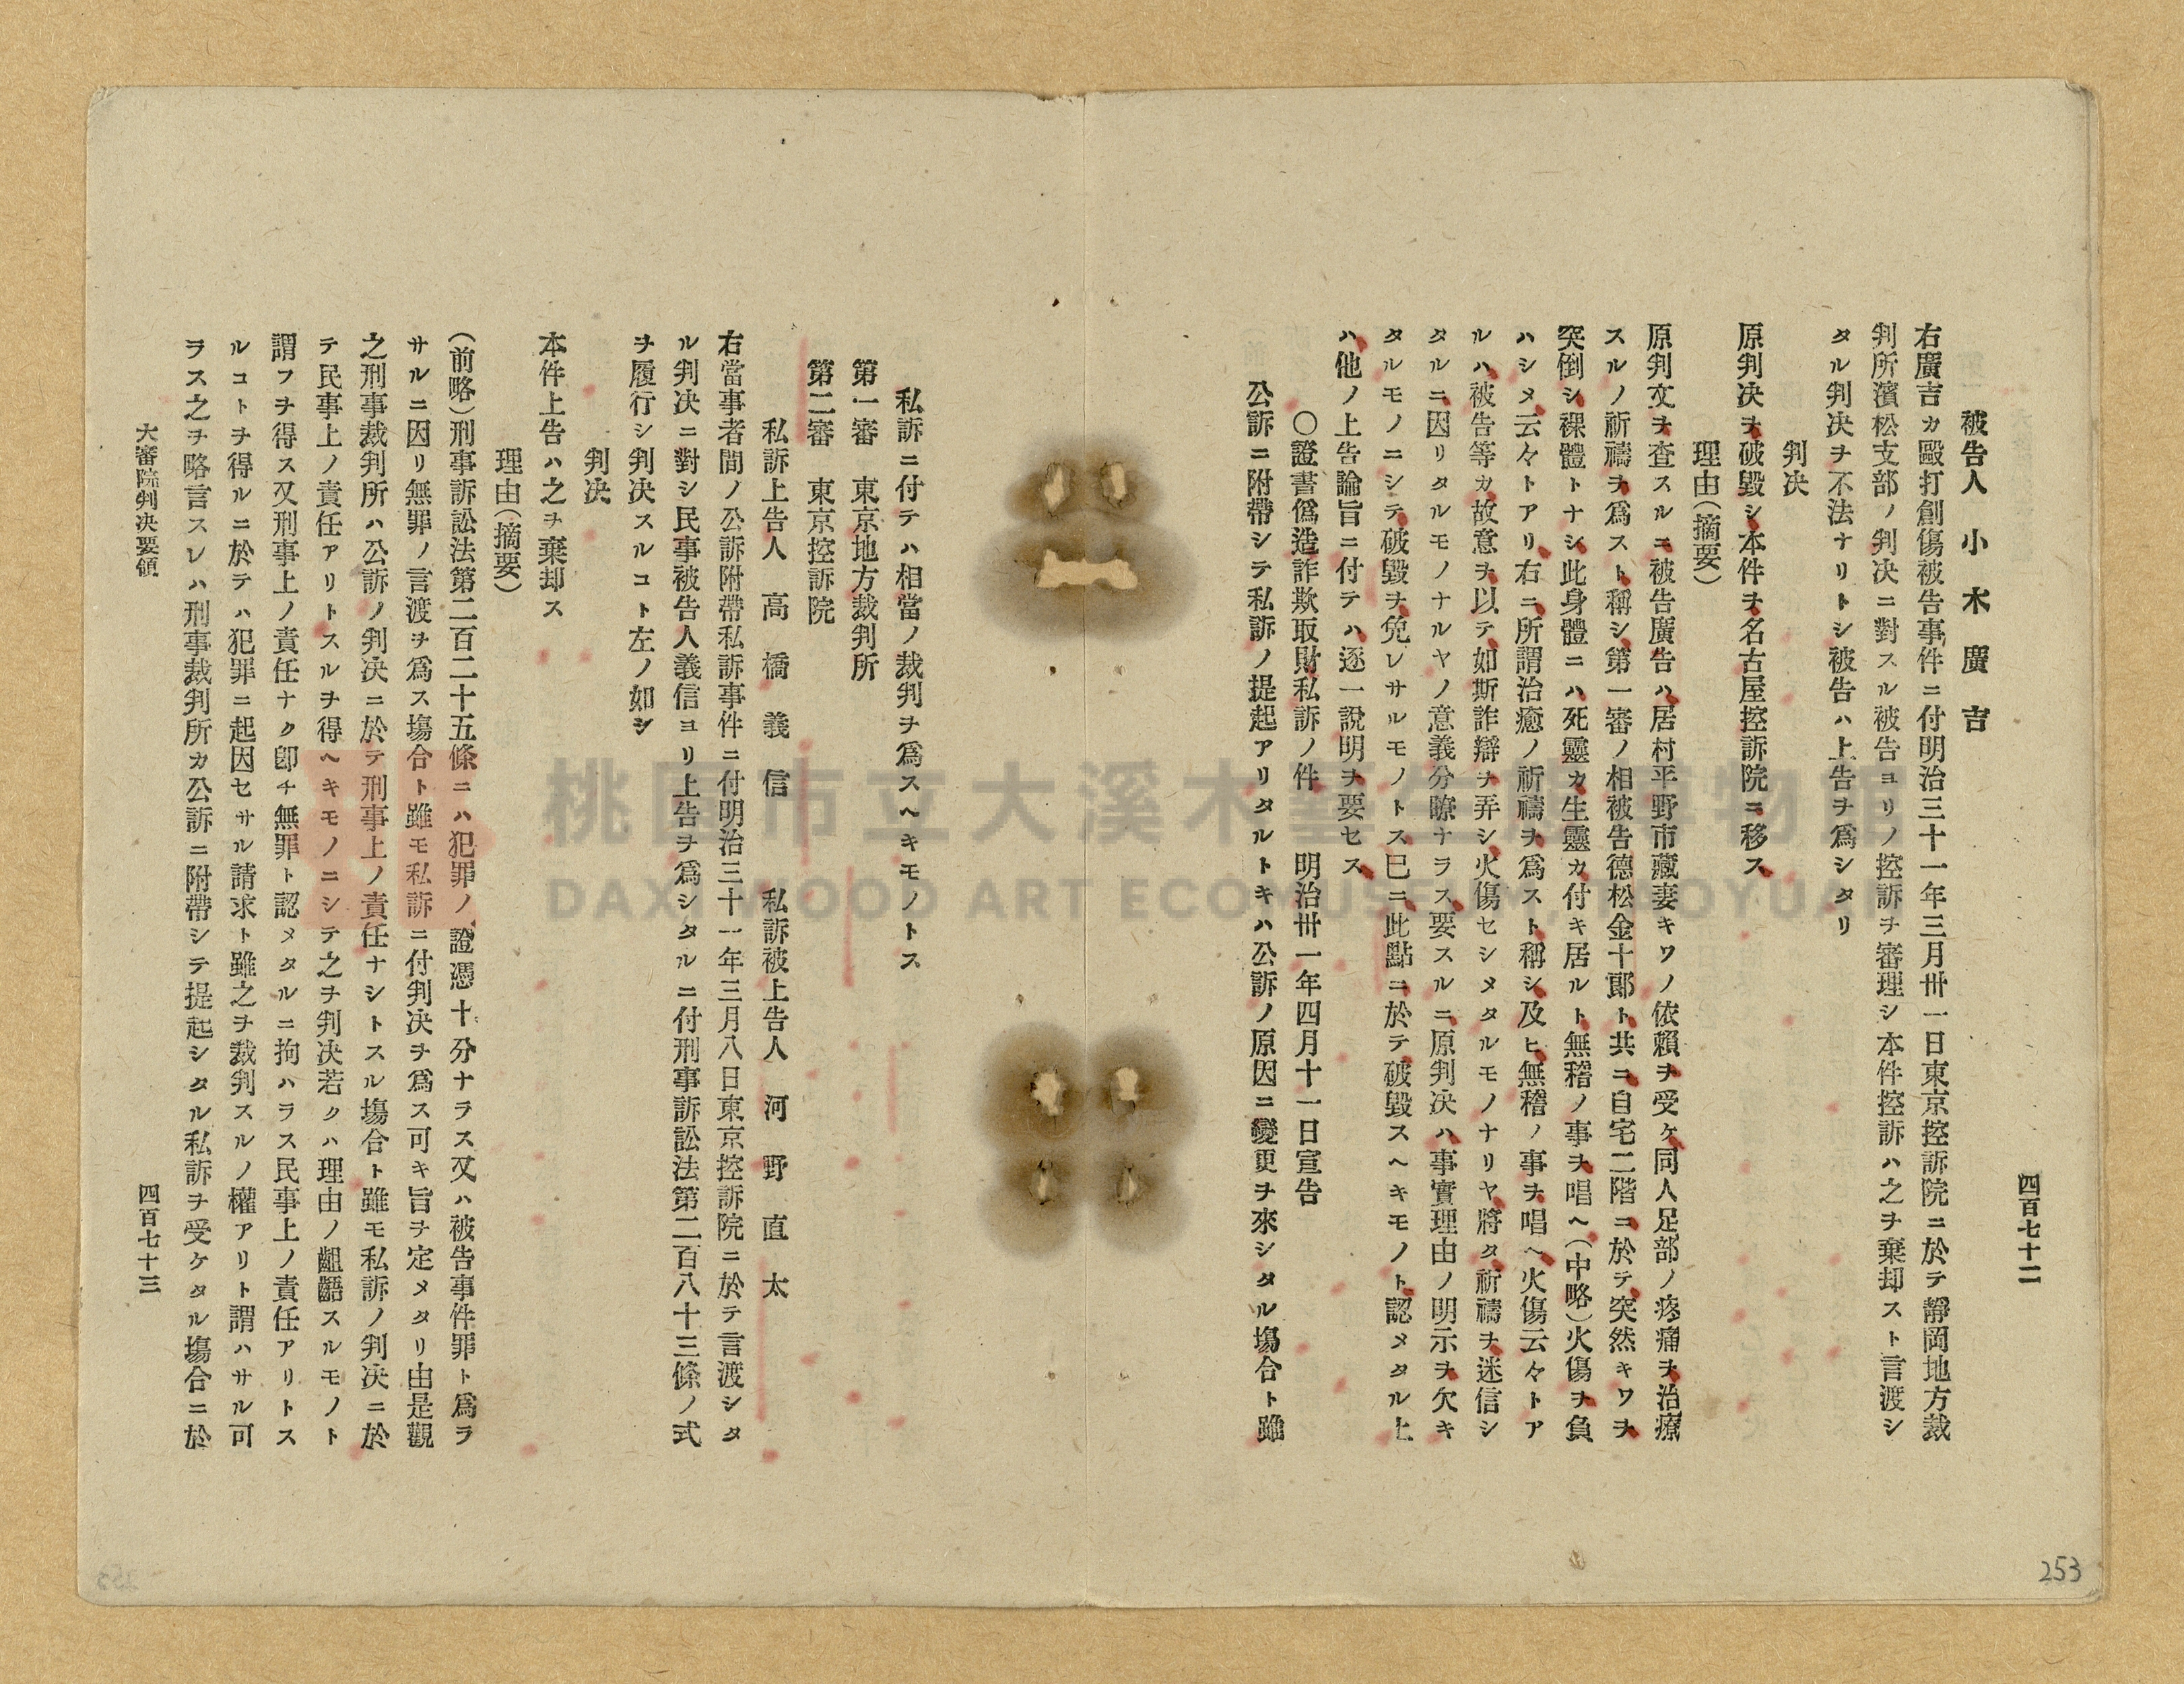 四百七十二
被告人 小木廣吉
右廣吉カ毆打創傷被告事件ニ付明治三十一年三月卅一日東京控訴院ニ於テ靜岡地方裁
判所濱松支部ノ判决ニ對スル被告ヨリノ控訴ヲ審理シ本件控訴ハ之ヲ棄却スト言渡シ
タル判决ヲ不法ナリトシ被告ハ上告ヲ爲シタリ
判决
原判决ヲ破毀シ本件ヲ名古屋控訴院ニ移ス
理由(摘要)
原判文ヲ査スルニ被告廣告ハ居村平野市藏妻キワノ依賴ヲ受ケ同人足部ノ疼痛ヲ治療
スルノ祈禱ヲ爲スト稱シ第一審ノ相被告德松金十郞ト共ニ自宅二階ニ於テ突然キワヲ
突倒シ裸體トナシ此身體ニハ死靈カ生靈カ付キ居ルト無稽ノ事ヲ唱ヘ(中略)火傷ヲ負
ハシメ云々トアリ右ニ所謂治癒ノ祈禱ヲ爲スト稱シ及ヒ無稽ノ事ヲ唱ヘ火傷云々トア
ルハ被告等カ故意ヲ以テ如斯詐辯ヲ弄シ火傷セシメタルモノナリヤ將タ祈禱ヲ迷信シ
タルニ因リタルモノナルヤノ意義分瞭ナラス要スルニ原判决ハ事實理由ノ明示ヲ欠キ
タルモノニシテ破毀ヲ免レサルモノトス已ニ此點ニ於テ破毀スヘキモノト認メタル上
ハ他ノ上告論旨ニ付テハ逐一說明ヲ要セス
〇證書僞造詐欺取財私訴ノ件 明治卅一年四月十一日宣告
公訴ニ附帶シテ私訴ノ提起アリタルトキハ公訴ノ原因ニ變更ヲ來シタル塲合ト雖
私訴ニ付テハ相當ノ裁判ヲ爲スヘキモノトス
第一審 東京地方裁判所
第二審 東京控訴院
私訴上告人 高橋義信 私訴被上告人 河野直太
右當事者間ノ公訴附帶私訴事件ニ付明治三十一年三月八日東京控訴院ニ於テ言渡シタ
ル判决ニ對シ民事被告人義信ヨリ上告ヲ爲シタルニ付刑事訴訟法第二百八十三條ノ式
ヲ履行シ判决スルコト左ノ如シ
判决
本件上告ハ之ヲ棄却ス
理由(摘要)
(前略)刑事訴訟法第二百二十五條ニハ犯罪ノ證憑十分ナラス又ハ被告事件罪ト爲ラ
サルニ因リ無罪ノ言渡ヲ爲ス塲合ト雖モ私訴ニ付判决ヲ爲ス可キ旨ヲ定メタリ由是觀
之刑事裁判所ハ公訴ノ判决ニ於テ刑事上ノ責任ナシトスル塲合ト雖モ私訴ノ判决ニ於
テ民事上ノ責任アリトスルヲ得ヘキモノニシテ之ヲ判决若クハ理由ノ齟齬スルモノト
謂フヲ得ス又刑事上ノ責任ナク卽チ無罪ト認メタルニ拘ハラス民事上ノ責任アリトス
ルコトヲ得ルニ於テハ犯罪ニ起因セサル請求ト雖之ヲ裁判スルノ權アリト謂ハサル可
ヲス之ヲ略言スレハ刑事裁判所カ公訴ニ附帶シテ提起シタル私訴ヲ受ケタル塲合ニ於
大審院判决要領
四百七十三
253
桃園市立大溪木藝生態博物館
DAXI WOOD ART ECOMUSEUM, TAOYUAN